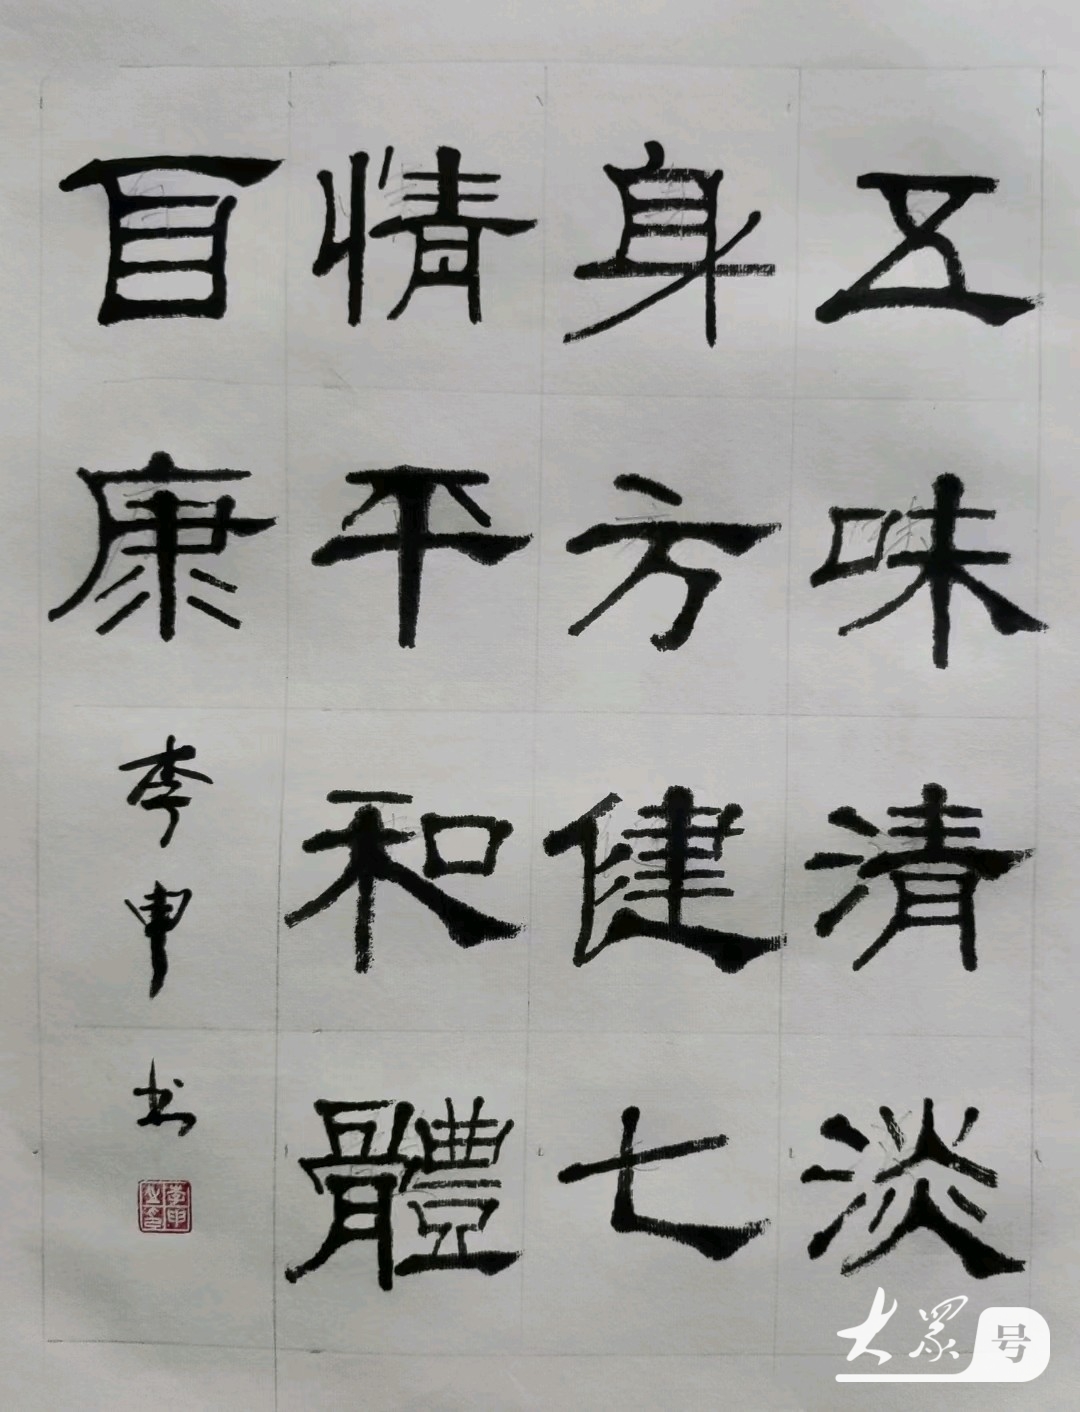 五味清淡
身方健七
情平和體
自康
李申书
大众号